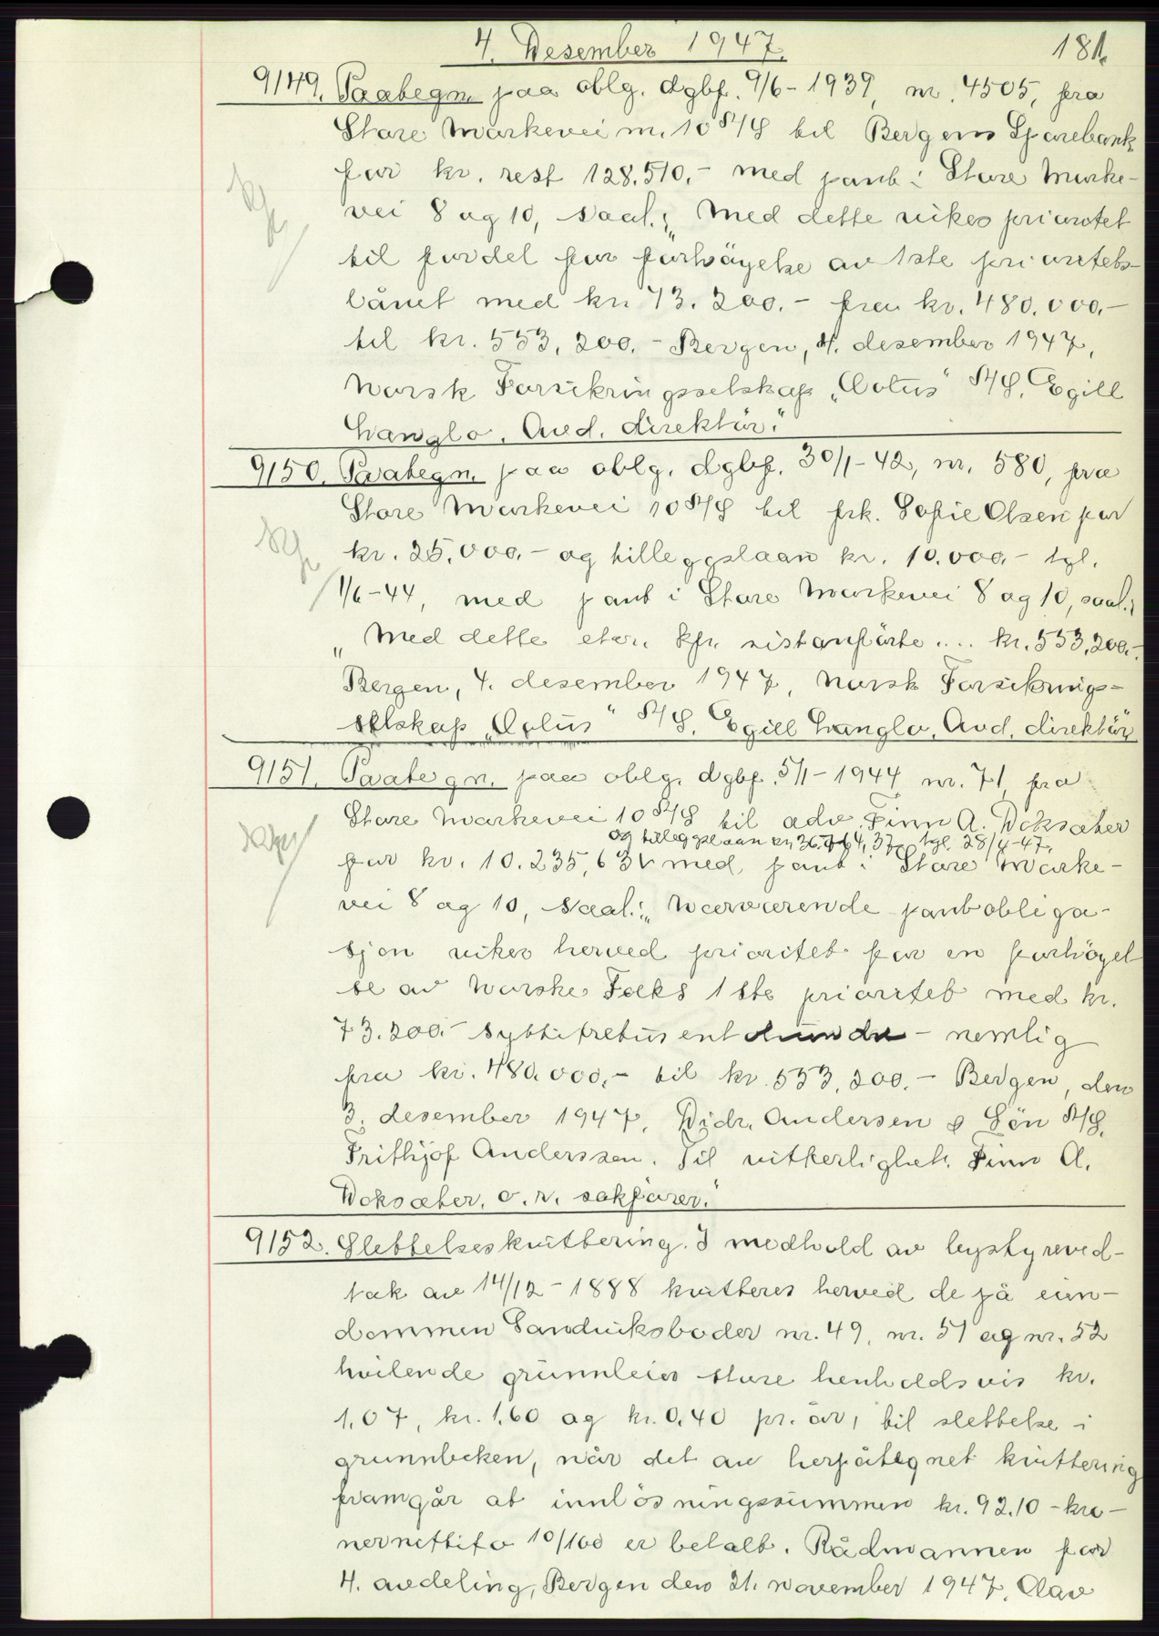 4. Desember 1947. 181.
9149. Paategn. paa oblg. dgbf. 9/6-1939, nr. 4505, fra
Store Markevei nr. 10 A/S til Bergens Sparebank
for kr. rest 128.510,- med pant i Store Marke-
vei 8 og 10, saal.: „Med dette vikes prioritet
til fordel for forhöyelse av 1ste prioritets-
lånet med kr. 73.200.- fra kr. 480.000.-
til kr. 553,200.- Bergen, 4. desember 1947,
Norsk Forsikringsselskap „Æolus" A/S. Egill
Langlo. Avd. direktör."
9150. Paategn. paa oblg. dgbf. 30/1-42, nr. 580, fra
Store Markevei 10 A/S til frk. Sofie Olsen for
kr. 25.000.- og tilleggslaan kr. 10.000.- tgl.
1/6-44, med pant i Store Markevei 8 og 10, saal.:
„Med dette etc. kfr. sistanförte .... kr. 553,200.-.
Bergen, 4. desember 1947, Norsk Forsikrings-
selskap „Æolus" A/S. Egill Langlo, Avd. direktör
9151. Paategn. paa oblg. dgbf. 5/1-1944 nr. 71 fra
Store Markevei 10 A/S til adv. Finn A.
og tilleggslaan kr. 37 tgl. 28/4-47.
for kr. 10.235,63 v med pant i Store Marke-
vei 8 og 10, saal.: „Nærværende pantobliga-
sjon viker herved prioritet for en forhöyel
se av Norske Folks 1ste prioritet med kr.
73.200.- syttitretusentohundre - nemlig
fra kr. 480.000.- til kr. 553,200.- Bergen, den
3. desember 1947, Didr. Andersen & Sön A/S.
Frithjof Anderssen. Til vitterlighet: Finn A.
o.r. sakförer."
9152. Slettelseskvittering. I medhold av bystyreved-
tak av 14/12-1888 kvitteres herved de på eien-
dommen Sandviksboder nr. 49, nr. 51 og nr. 52
hvilende grunnleier store henholdsvis kr.
1.07, kr. 1,60 og kr. 0,40 pr. år, til slettelse i
grunnboken, når det av herpåtegnet kvittering
framgår at innlösningssummen kr. 92.10 - kro-
nernittito 10/100 er betalt. Rådmannen for
4. avdeling, Bergen den 21. november 1947. Olav